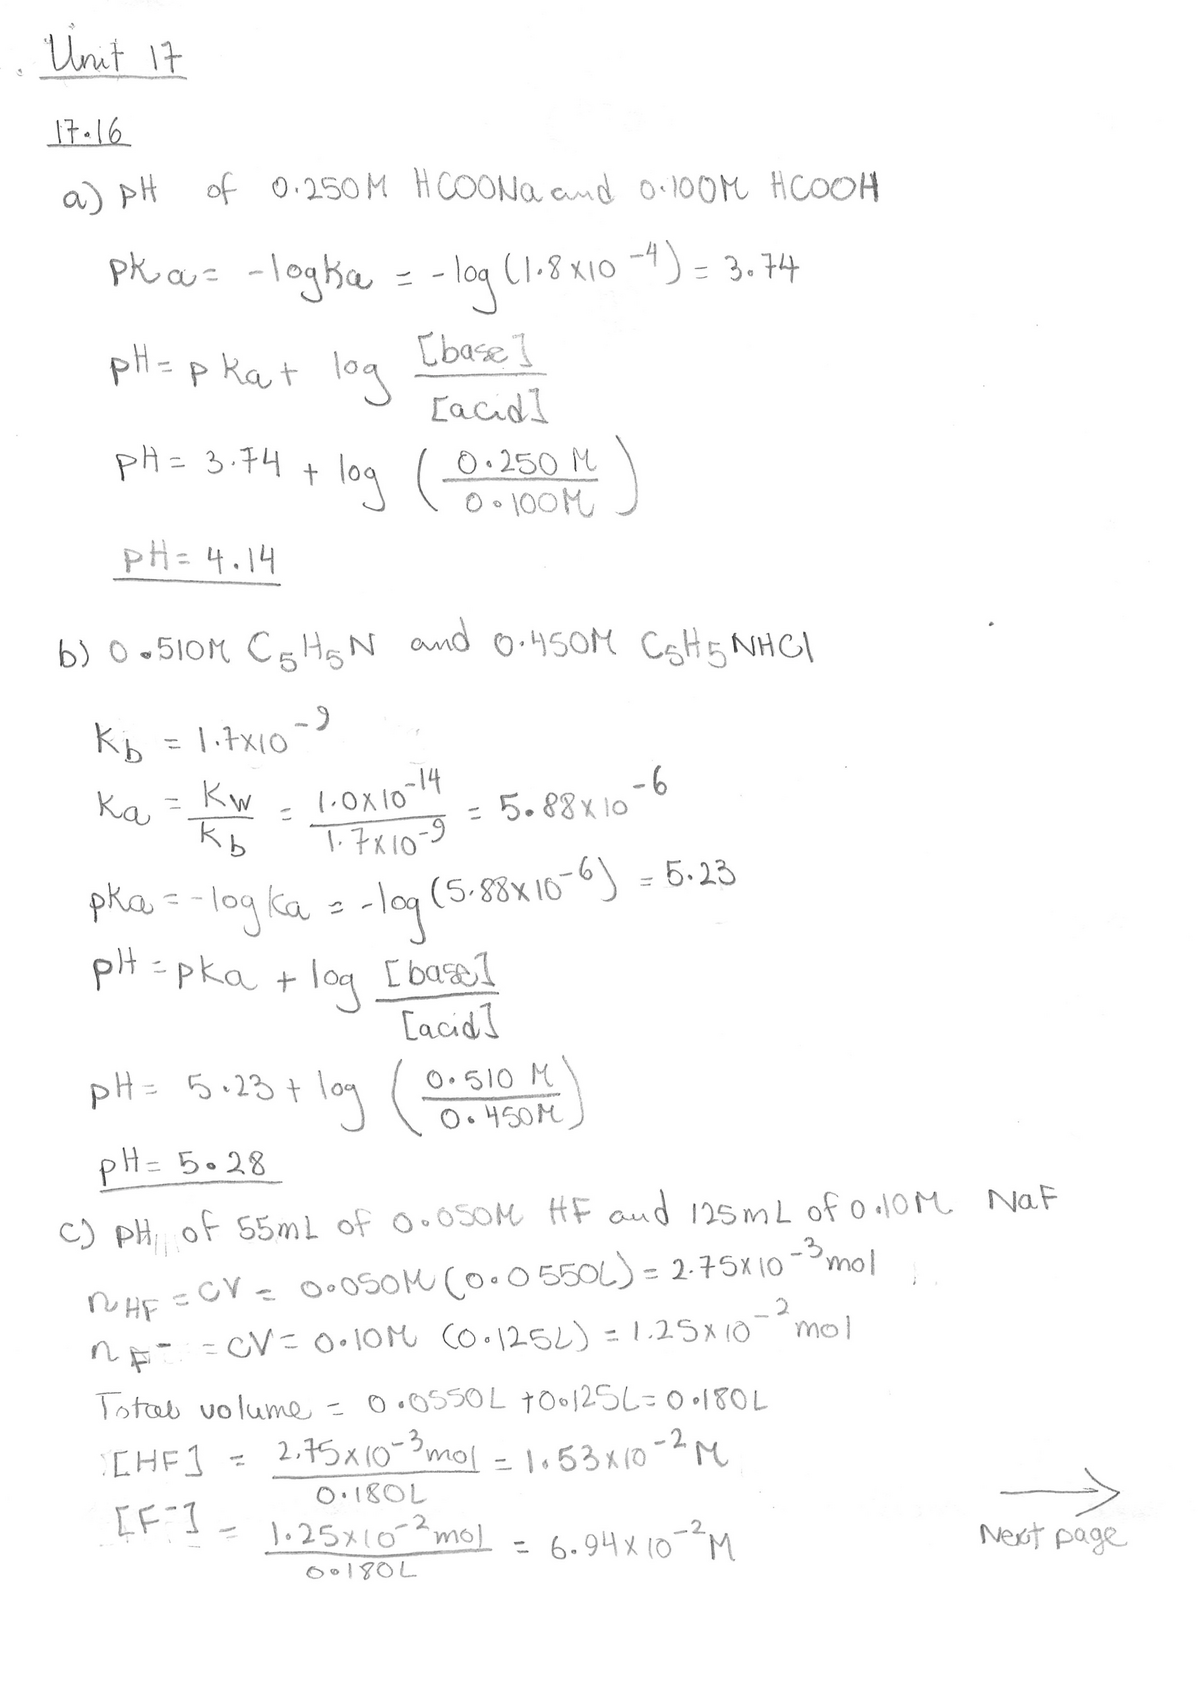 Unit 17
17.16
a) pH of 0.250M HCOONa and 0.100M HCOOH
pKa = -logKa = -log (1.8x10^-4) = 3.74
pH = pKa + log [base]/[acid]
pH = 3.74 + log (0.250 M/0.100M)
pH = 4.14
b) 0.510M C5H5N and 0.450M C5H5NHCl
Kb = 1.7x10^-9
Ka = Kw/Kb = 1.0x10^-14/1.7x10^-9 = 5.88x10^-6
pka = -log Ka = -log (5.88x10^-6) = 5.23
pH = pka + log [base]/[acid]
pH = 5.23 + log (0.510 M/0.450M)
pH = 5.28
c) pH of 55mL of 0.050M HF and 125mL of 0.10M NaF
nHF = CV = 0.050M (0.0550L) = 2.75x10^-3 mol
nF- = CV = 0.10M (0.125L) = 1.25x10^-2 mol
Total volume = 0.0550L + 0.125L = 0.180L
[HF] = 2.75x10^-3 mol/0.180L = 1.53x10^-2 M
[F-] = 1.25x10^-2 mol/0.180L = 6.94x10^-2 M
Next page